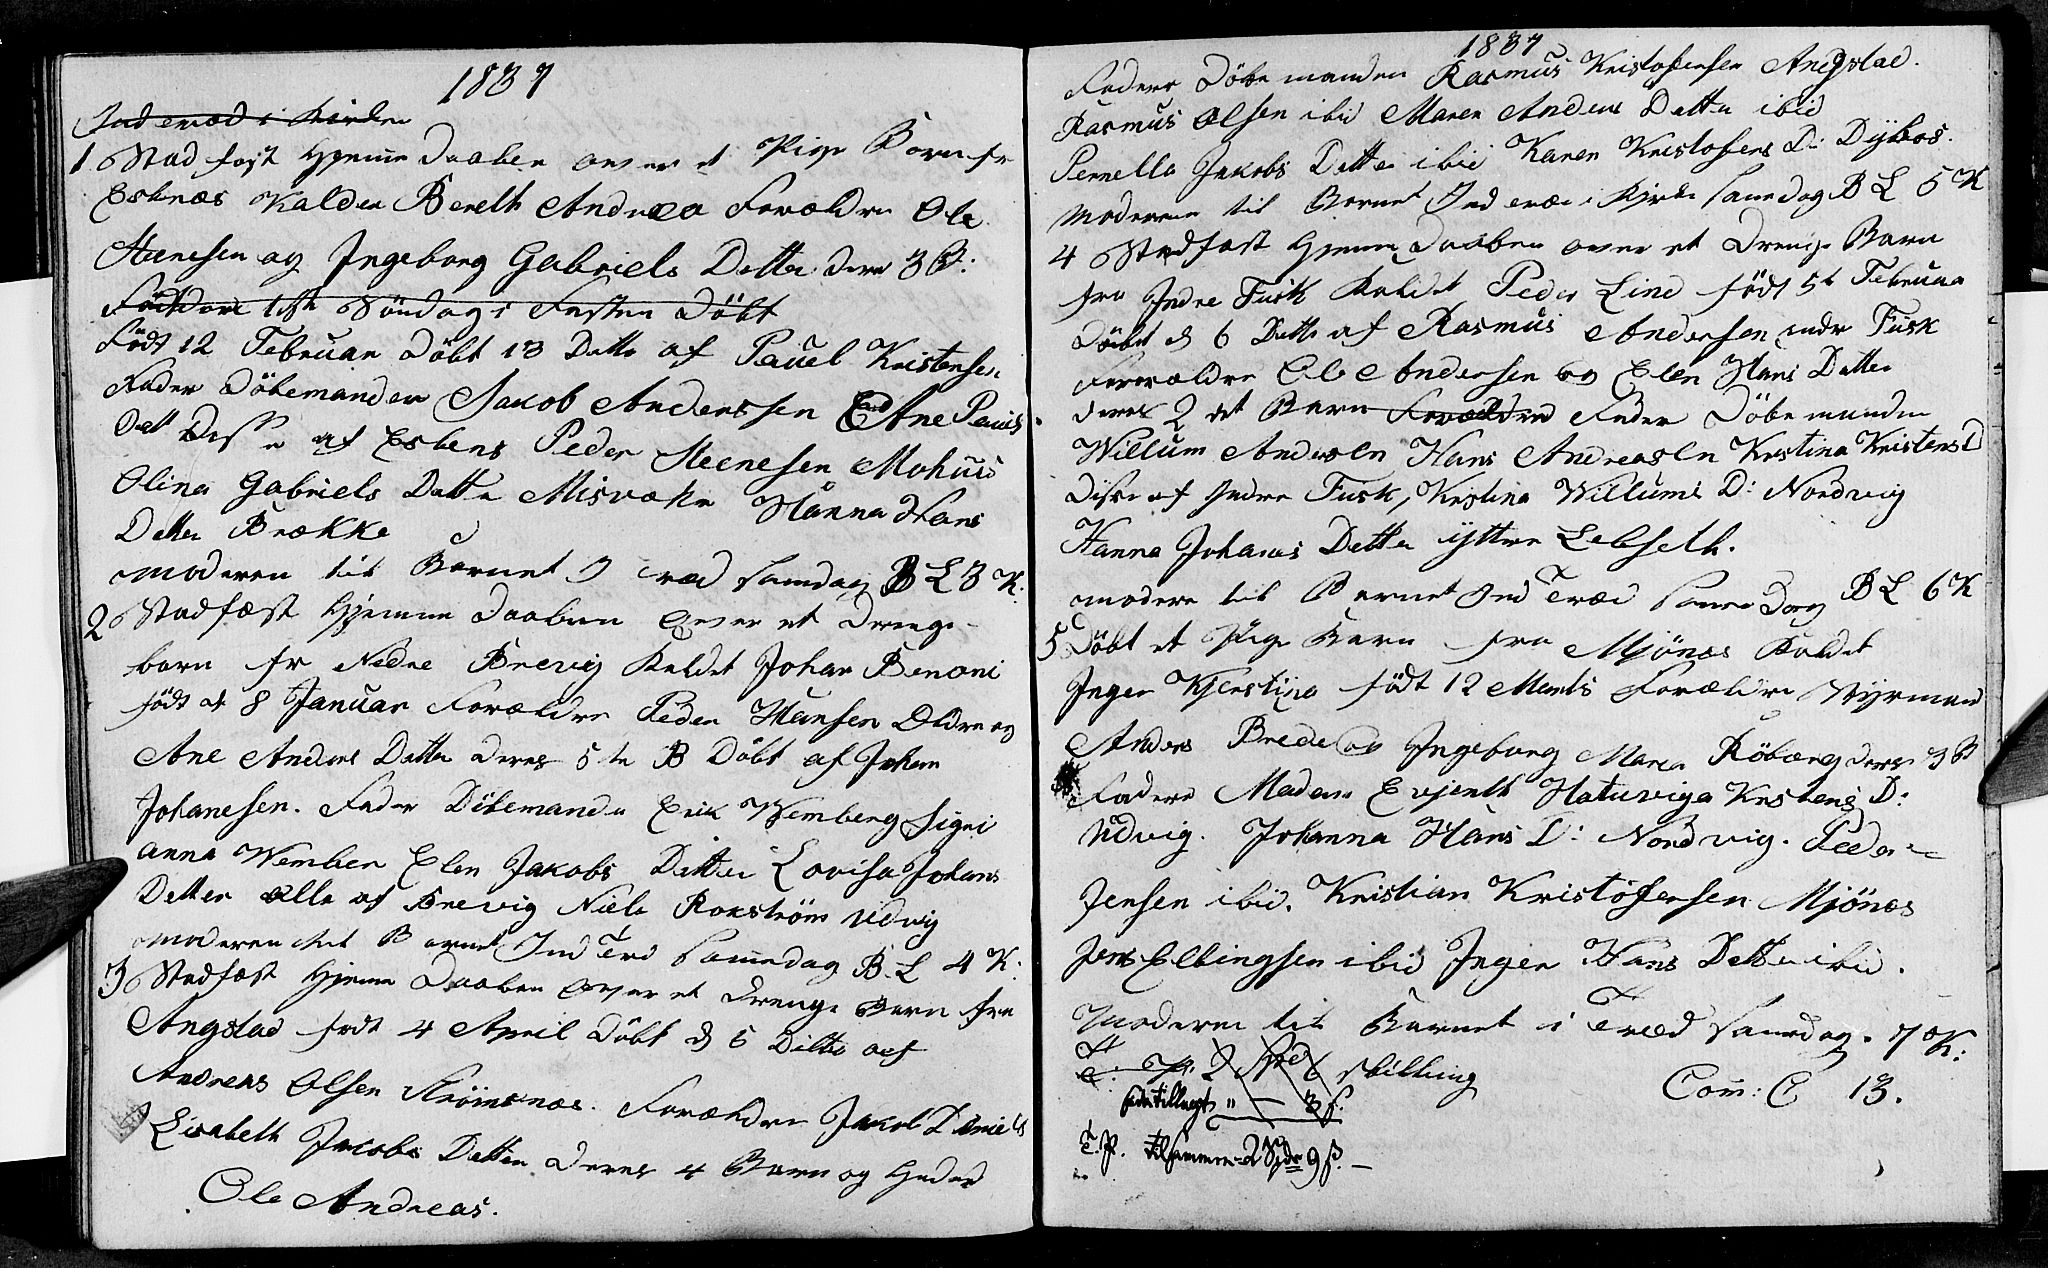 1837
Ind eræd i Kirken
1 Stad fast Hjemme Daaben over et Pige Barn fr
Esknæs Kaldet Bereth Andrea Forældre Ole
Steenesen og Ingeborg Gabriels Datter deres 3 B:
Söndag i Fasten Döbt
födt 12 Februar Döbt 13 Dette af Pauel Kristensen
Fader Döbemanden Jakob Anderssen Ane Pauls
Dat Disse af Esknes Peder Steenesen Mohuus
Olina Gabriels Datter Misvær Hanna Hans
Datter Brække
moderen til Barnet I træd samdag B L 3 K:
2 Stadfæst Hjemme Daaben over et Drenge
barn fr Nedre Brevig Kaldet Johan Benoni
födt d 8 Januar Forældre Peder Hansen Oldre og
Ane Anders Datter deres 5 te B Döbt af Johan
Johanesen. Fader Döbemanden Erik Wemberg Sigri
anna Wember Elen Jakobs Datter Lovisa Johans
Datter alle af Brevig Niels Rokström Udvig
moderen til Barnet Ind Tred samedag B. L 4 K:
3 Stadfæst Hjeme Daaben over et Drenge Barn fra
Angstad født 4 April Döbt d 5 Ditto af
Andreas Olsen Strömsnæs. Forældre Jakob Daniels
Lisabeth Jacobs Datter Deres 4 Barn og Heder
Ole Andreas.
1837
Fadere Döbe manden Rasmus Kristofersen Angstad.
Rasmus Olsen ibid Maren Anders Datter ibid
Pernella Jakobs Datter ibid Karen Kristofers D: Dybos.
Moderen til Barnet Ind træd i Kirke samedag B L 5 K
4 Stadfast Hjemme Daaben over et Drenge Barn
fra Indre Fusk Kaldet Peder Lind födt 5t Februar
Döbt d 6 Detto af Rasmus Andersen indr Fusk
Forældre Ole Andersen og Elen Hans Datter
deres 2 et Barn Forældre Fader Döbe manden
Willum Andersen Hans Andreasen Kristina Kristens D
Disse af Indre Fusk, Kristina Willums D: Nordvig
Hanna Johanes Datter ytter Lebseth.
modere til Barnet Ind Træd samme Dag B L 6 K
5 Döbt et Pige Barn fra Mjönes Kaldet
Inger Kjerstina födt 12 Marts Forældre Styrmand
Anders Brede og Ingeborg Maria Röberg deres 3 B
Fadere Madam Evjenth Hatuviga Kristens D:
Udvig. Johanna Hans D: Nordvig. Peder
Jensen ibid. Kristian Kristofersen Mjönes
Jens Ellingsen ibid Inger Hans Datter ibid.
Moderen til Barnet i Træd samedag. 7 K:
T. P. 2 Spd 6 skilling
Com: C 13.
siden tillagt " — 3 s.
T. P. tilsammen 2 Spdr 9 s. —